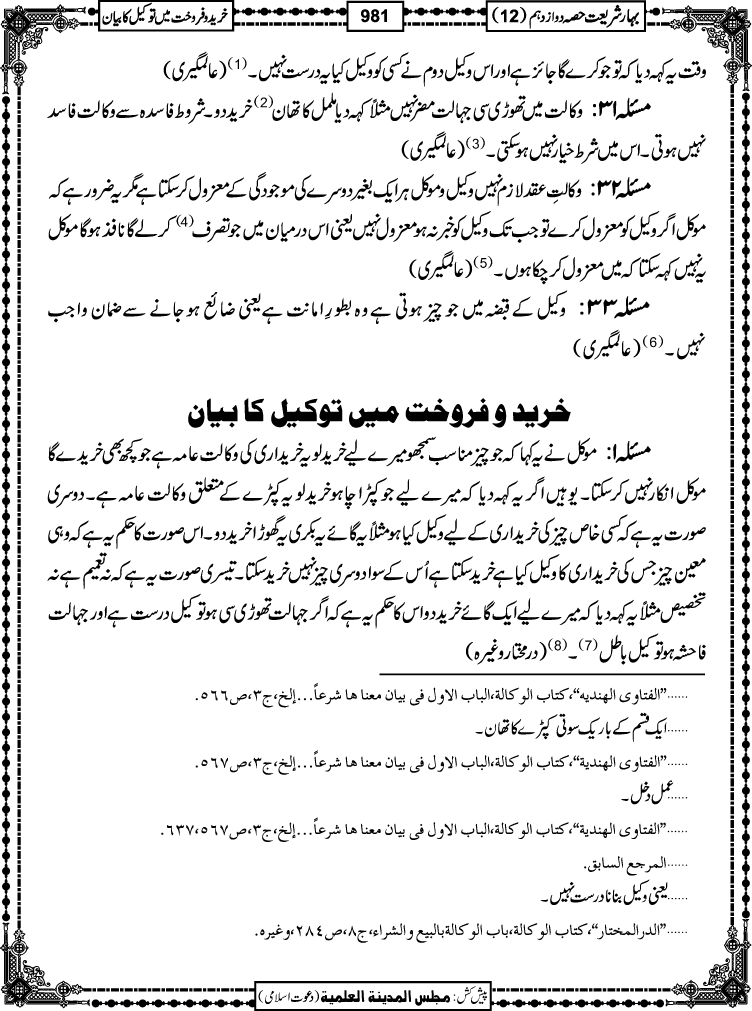 بہار شریعت حصہ دوازدہم (12)
981
خرید و فروخت میں توکیل کا بیان
وقت یہ کہہ دیا کہ تو جو کرے گا جائز ہے اور اس وکیل دوم نے کسی کو وکیل کیا یہ درست نہیں۔(1) (عالمگیری)
مسئلہ ۳۱: وکالت میں تھوڑی سی جہالت مضر نہیں مثلاً کہہ دیا ململ کا تھان(2) خرید دو۔ شروط فاسدہ سے وکالت فاسد
نہیں ہوتی۔ اس میں شرط خیار نہیں ہو سکتی۔(3) (عالمگیری)
مسئلہ ۳۲: وکالت عقد لازم نہیں وکیل و موکل ہر ایک بغیر دوسرے کی موجودگی کے معزول کر سکتا ہے مگر یہ ضرور ہے کہ
موکل اگر وکیل کو معزول کرے تو جب تک وکیل کو خبر نہ ہو معزول نہیں یعنی اس درمیان میں جو تصرف(4) کر لے گا نافذ ہو گا موکل
یہ نہیں کہہ سکتا کہ میں معزول کر چکا ہوں۔(5) (عالمگیری)
مسئلہ ۳۳: وکیل کے قبضہ میں جو چیز ہوتی ہے وہ بطورِ امانت ہے یعنی ضائع ہو جانے سے ضمان واجب
نہیں۔(6) (عالمگیری)
خرید و فروخت میں توکیل کا بیان
مسئلہ ۱: موکل نے یہ کہا کہ جو چیز مناسب سمجھو میرے لیے خرید لو یہ خریداری کی وکالت عامہ ہے جو کچھ بھی خریدے گا
موکل انکار نہیں کر سکتا۔ یوہیں اگر یہ کہہ دیا کہ میرے لیے جو کپڑا چاہو خرید لو یہ کپڑے کے متعلق وکالت عامہ ہے۔ دوسری
صورت یہ ہے کہ کسی خاص چیز کی خریداری کے لیے وکیل کیا ہو مثلاً یہ گائے یہ بکری یہ گھوڑا خرید دو۔ اس صورت کا حکم یہ ہے کہ وہی
معین چیز جس کی خریداری کا وکیل کیا ہے خرید سکتا ہے اُس کے سوا دوسری چیز نہیں خرید سکتا۔ تیسری صورت یہ ہے کہ نہ تعمیم ہے نہ
تخصیص مثلاً یہ کہہ دیا کہ میرے لیے ایک گائے خرید دو اس کا حکم یہ ہے کہ اگر جہالت تھوڑی سی ہو توکیل درست ہے اور جہالت
فاحشہ ہو توکیل باطل(7)۔(8) (درمختار وغیرہ)
......”الفتاوى الهنديه“، كتاب الوكالة، الباب الاول في بيان معنا ها شرعاً...إلخ، ج٣، ص٥٦٦.
......ایک قسم کے باریک سوتی کپڑے کا تھان۔
......”الفتاوى الهندية“، كتاب الوكالة، الباب الاول في بيان معنا ها شرعاً...إلخ، ج٣، ص٥٦٧.
......عمل دخل۔
......”الفتاوى الهندية“، كتاب الوكالة، الباب الاول في بيان معنا ها شرعاً...إلخ، ج٣، ص٥٦٧، ٦٣٧.
......المرجع السابق.
......یعنی وکیل بنانا درست نہیں۔
......”الدرالمختار“، كتاب الوكالة، باب الوكالة بالبيع والشراء، ج٨، ص٢٨٤، وغيره.
پیش کش: مجلس المدينة العلمية (دعوت اسلامی)